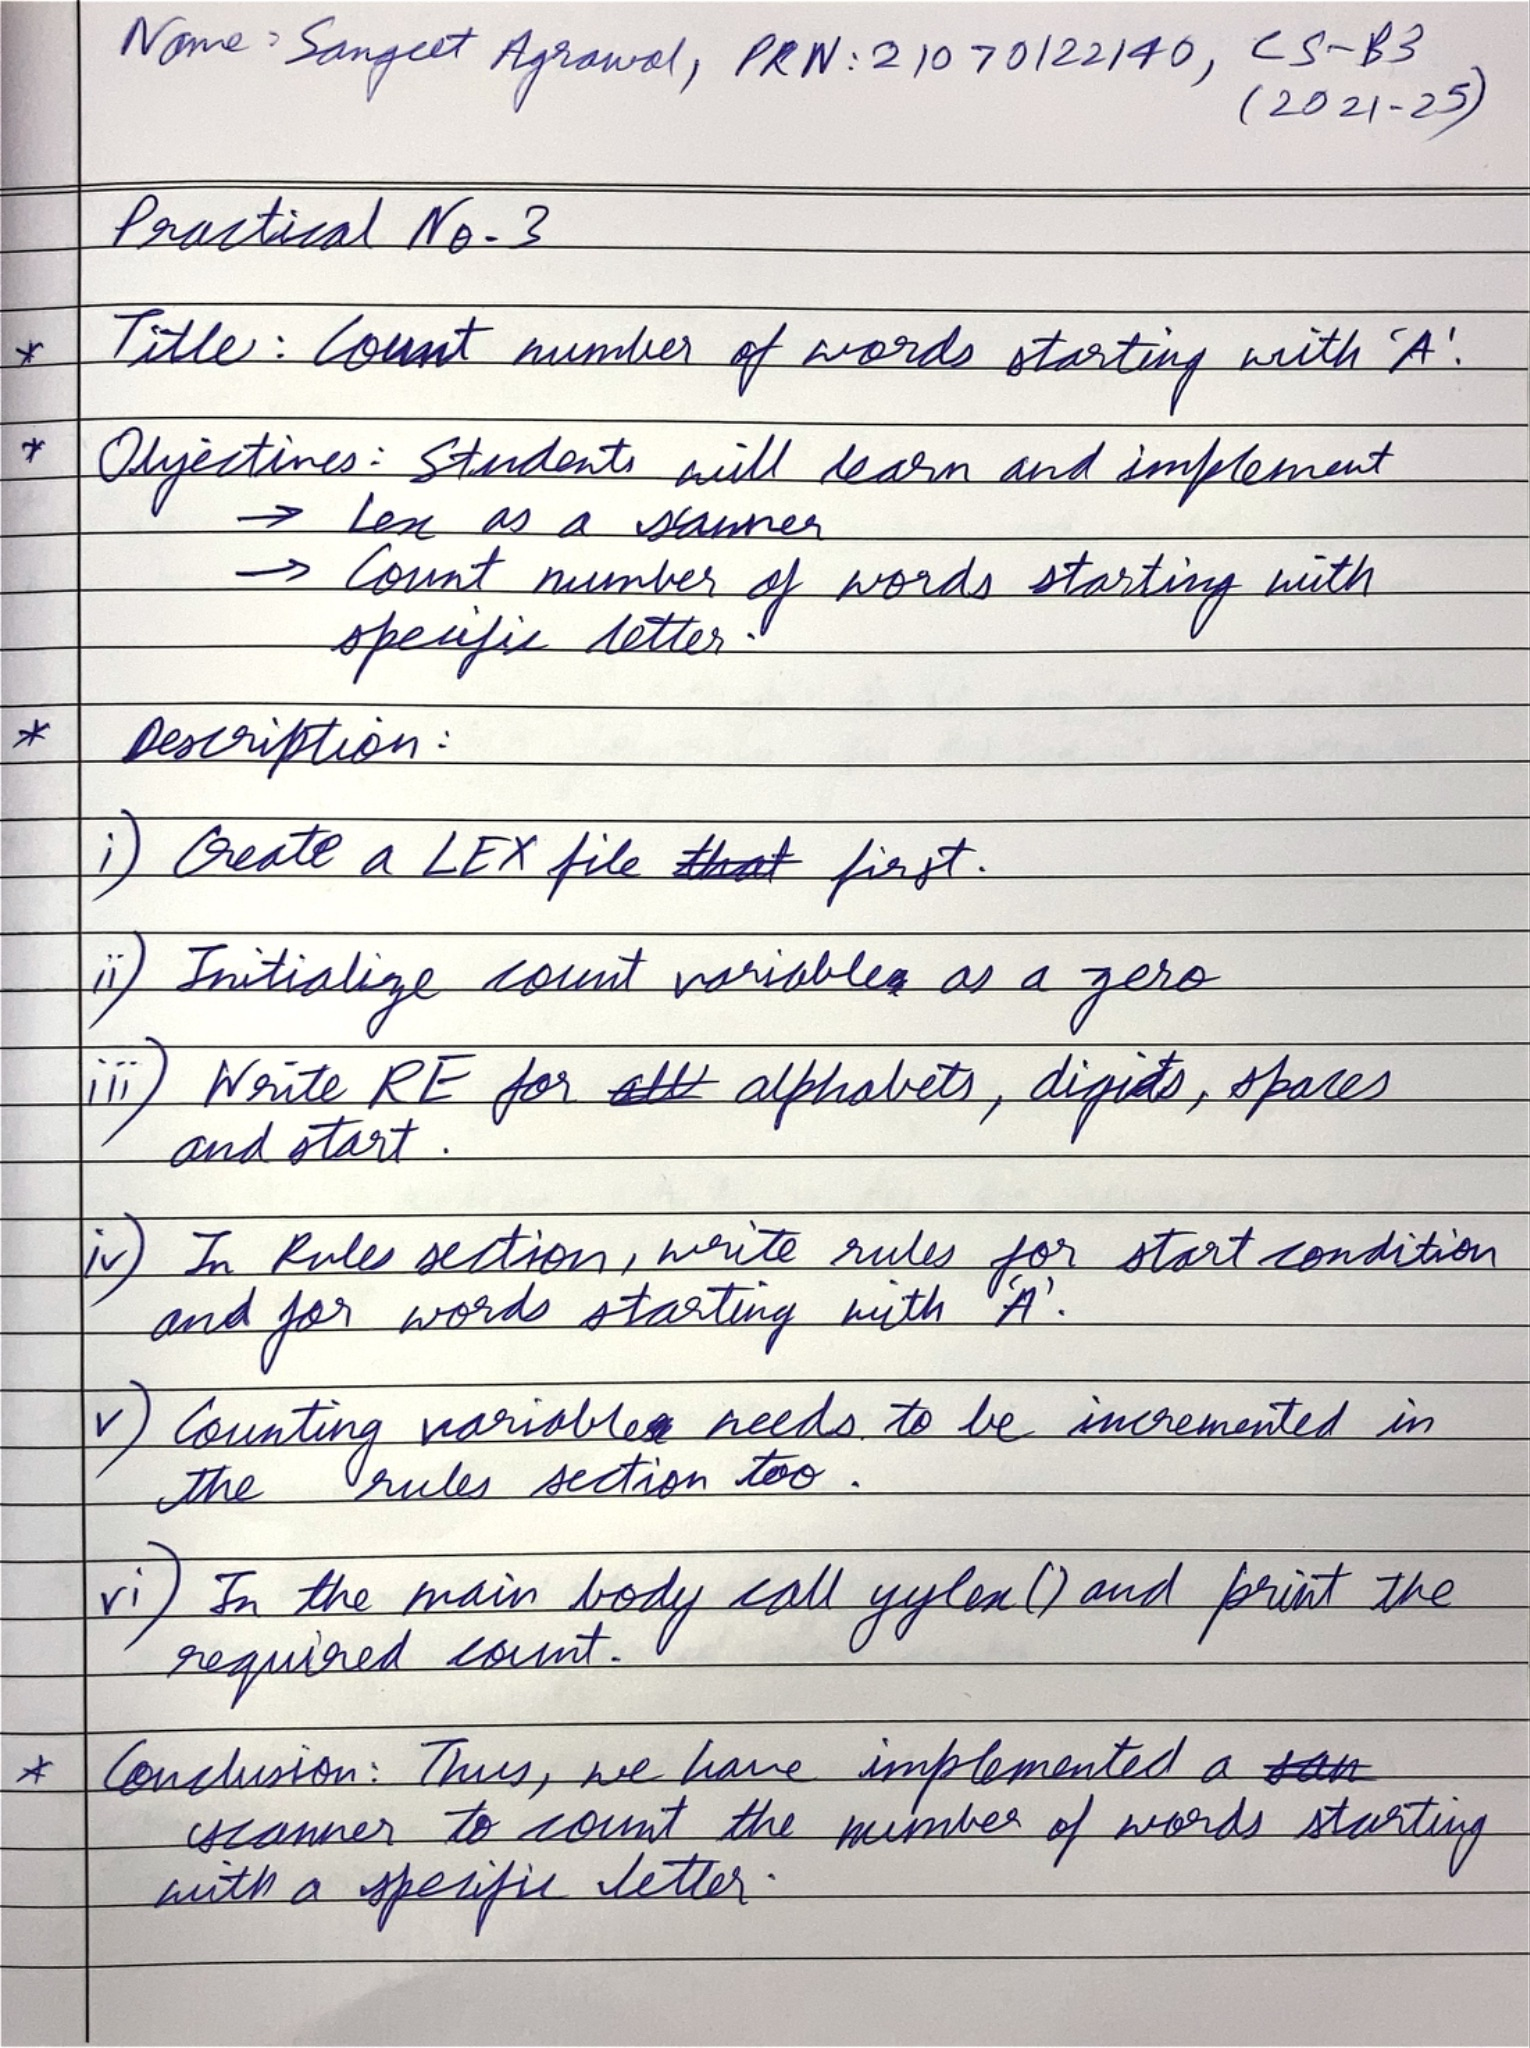 Name: Sangeet Agrawal, PRN: 21070122140, CS-B3
(2021-25)
Practical No. 3
* Title: Count number of words starting with 'A'.
* Objectives: Students will learn and implement
→ Lex as a scanner
→ Count number of words starting with
specific letter.
* Description:
i) Create a LEX file that first.
ii) Initialize count variable as a zero
iii) Write RE for all alphabets, digits, spaces
and start.
iv) In Rules section, write rules for start condition
and for words starting with 'A'.
v) Counting variable needs to be incremented in
the rules section too.
vi) In the main body call yylex() and print the
required count.
* Conclusion: Thus, we have implemented a san
scanner to count the number of words starting
with a specific letter.